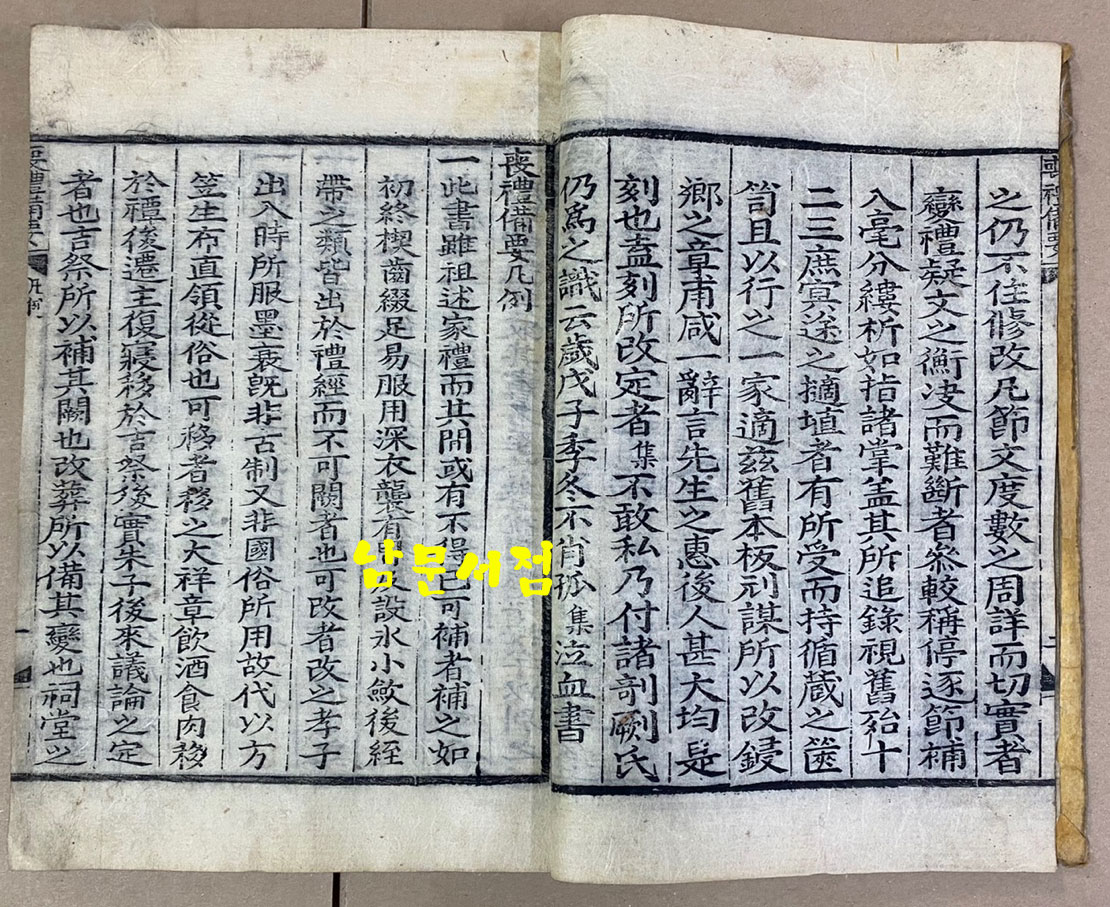 之仍不住修改凡節文度數之周詳而切實者
變禮疑文之衡决而難斷者叅較稱停逐節補
入毫分縷析如指諸掌盖其所追錄視舊殆十
二三庶㝠途之擿埴者有所受而持循蔵之篋
笥且以行之一家適茲舊本板刓謀所以改鋟
鄉之章甫咸一辭言先生之惠後人甚大均髮
刻也盍刻所改定者集不敢私乃付諸剞劂氏
仍爲之識云歲戊子季冬不肖孤集泣血書
喪禮備要凡例
一此書雖祖述家禮而其間或有不得已可補者補之如
初終楔齒綴足易服用深衣襲有設氷小斂後絰
帶之類皆出於禮經而不可闕者也可改者改之孝子
出入時所服墨衰旣非古制又非國俗所用故代以方
笠生布直領從俗也可移者移之大祥章飮酒食肉移
於禫後遷主復寢移於吉祭後實朱子後來議論之定
者也吉祭所以補其闕也改葬所以備其變也祠堂之
喪禮備要
喪禮備要 凡例
一
남문서점